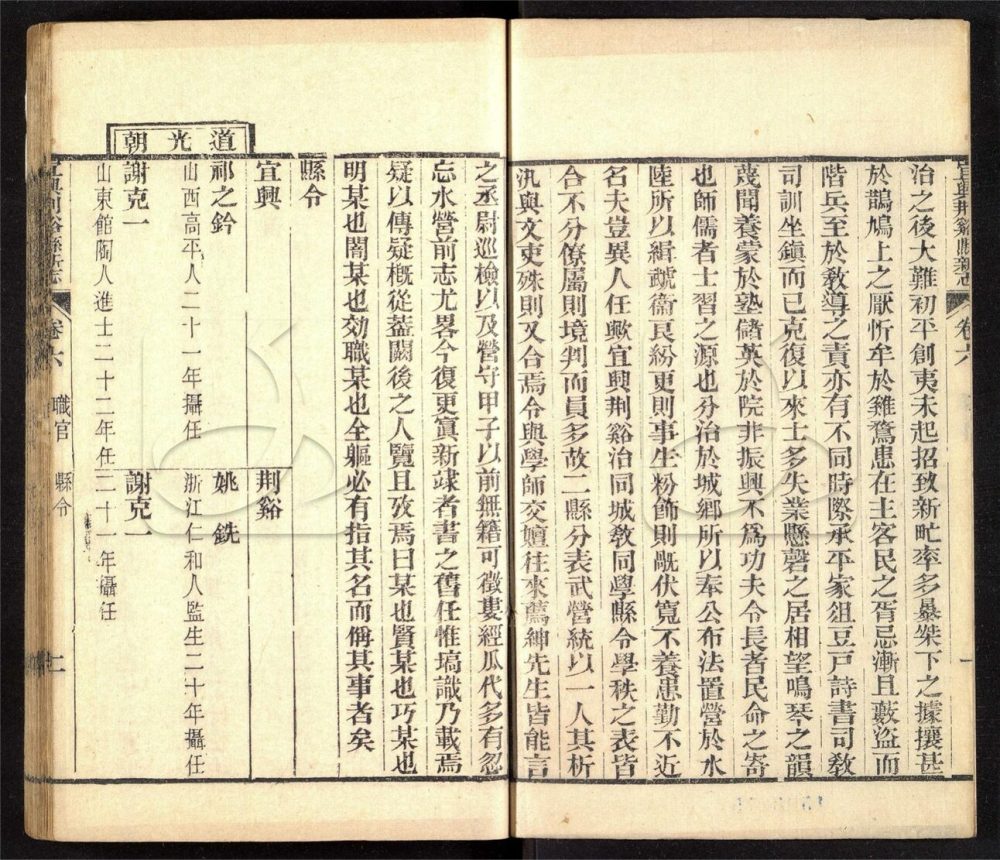 治之後大難初平創夷未起招致新甿率多暴桀下之據攘甚
於鵲鳩上之厭忻牟於雞鶩患在主客民之胥忌漸且藪盜而
階兵至於敎導之責亦有不同時際承平家俎豆戸詩書司敎
司訓坐鎮而已克復以來士多失業懸磬之居相望鳴琴之韻
蔑聞養蒙於塾儲英於院非振興不爲功夫令長者民命之寄
也師儒者士習之源也分治於城鄉所以奉公布法置營於水
陸所以緝虣衞良紛更則事生粉飾則戤伏寬不養患勤不近
名夫豈異人任歟宜興荆谿治同城敎同學縣令學秩之表皆
合不分僚屬則境判而員多故二縣分表武營統以一人其析
汛與文吏殊則又合焉令與學師交嬗往來薦紳先生皆能言
宜興荆谿縣新志
卷六
一
之丞尉巡檢以及營守甲子以前無籍可徵婁經瓜代多有忽
忘水營前志尤畧今復更寘新𨽻者書之舊任惟塙識乃載焉
疑以傳疑槪從葢闕後之人覽且攷焉曰某也賢某也巧某也
明某也闇某也効職某也全軀必有指其名而偁其事者矣
縣令
宜興
荆谿
道光朝
祁之鈐
山西高平人二十一年攝任
姚 銑
浙江仁和人監生二十年攝任
謝克一
山東館陶人進士二十二年任
謝克一
二十一年攝任
宜興荆谿縣新志
卷六
職官 縣令
二